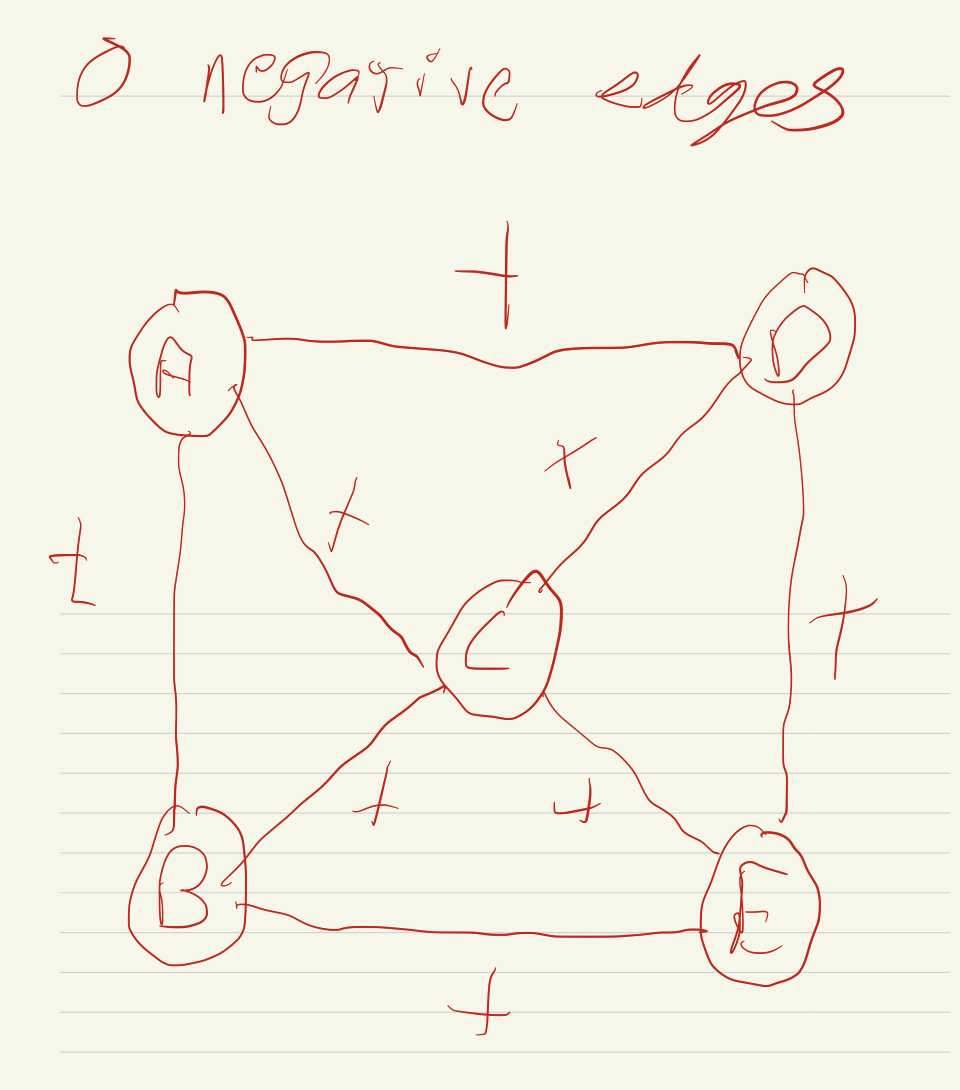 0 negative edges
+
A
D
+
+
+
+
C
+
+
B
E
+